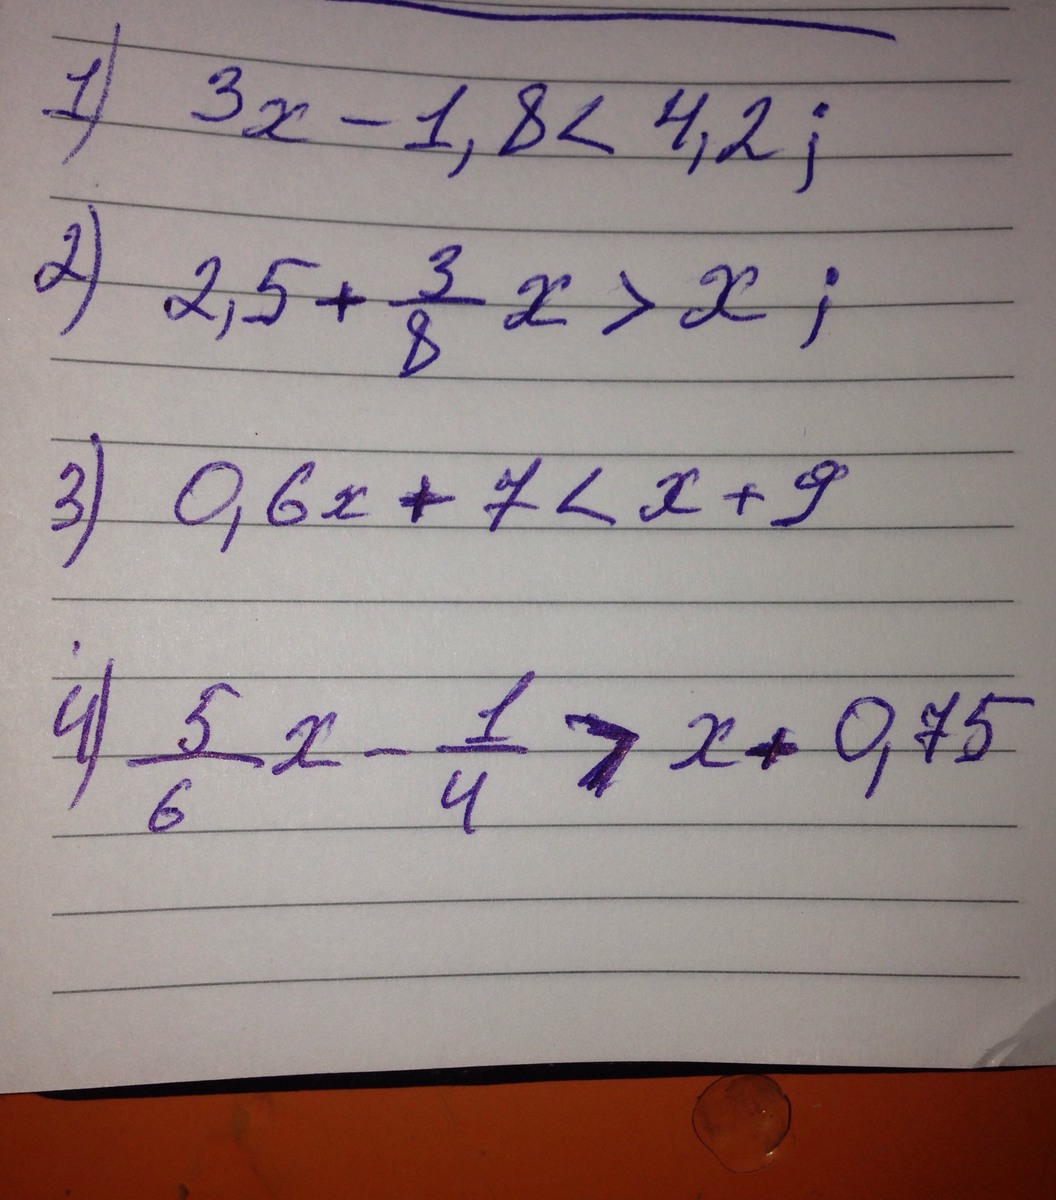 1) 3x - 1,8 < 4,2;
2) 2,5 + 3/8 x > x;
3) 0,6x + 7 < x + 9
4) 5/6 x - 1/4 > x + 0,75